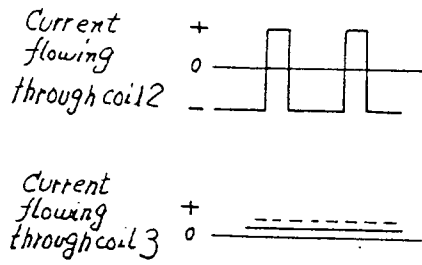 Current
flowing
through coil 2
+
0
−
Current
flowing
through coil 3
+
0